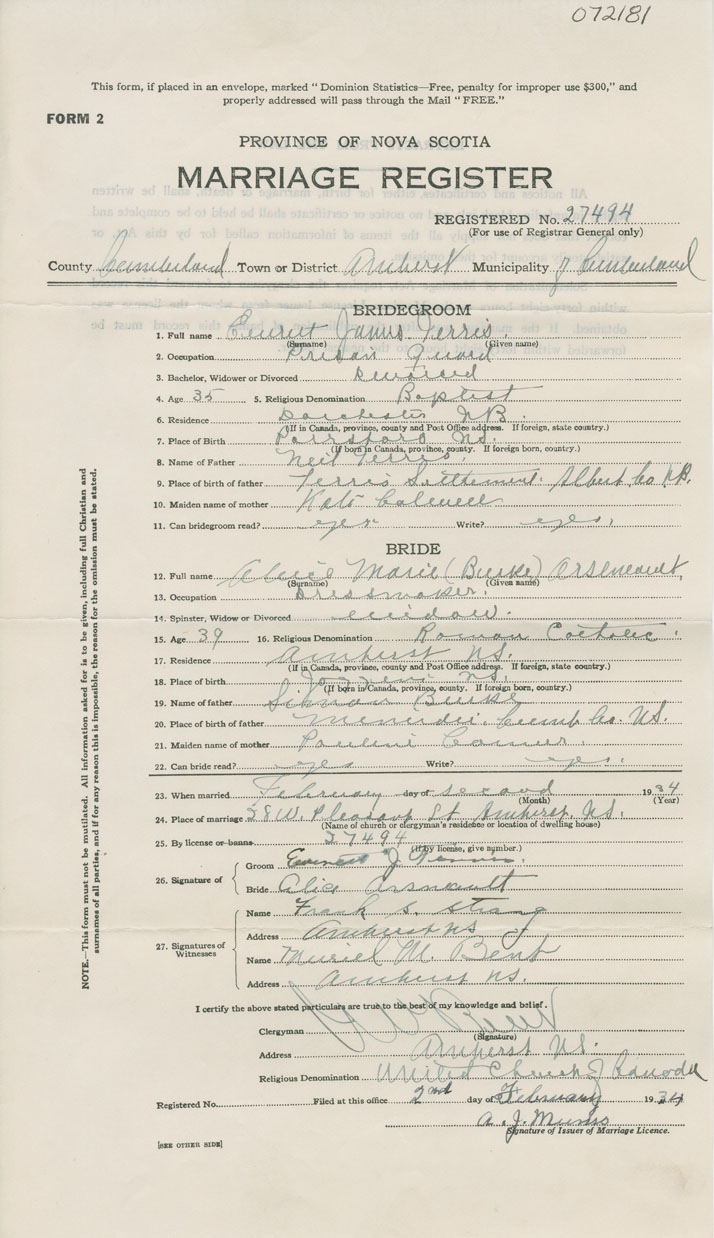 072181
This form, if placed in an envelope, marked "Dominion Statistics—Free, penalty for improper use $300," and
properly addressed will pass through the Mail "FREE."
FORM 2
PROVINCE OF NOVA SCOTIA
MARRIAGE REGISTER
REGISTERED No. 27494
(For use of Registrar General only)
County Cumberland Town or District Amherst Municipality of Cumberland
BRIDEGROOM
1. Full name James Ferris
(Surname) (Given name)
2. Occupation Prison Guard
3. Bachelor, Widower or Divorced Divorced
4. Age 35 5. Religious Denomination Baptist
6. Residence Dorchester N.B.
(If in Canada, province, county and Post Office address. If foreign, state country.)
7. Place of Birth Parrsboro N.S.
(If born in Canada, province, county. If foreign born, country.)
8. Name of Father Neil Ferris
9. Place of birth of father Ferris Settlement. Albert Co N.B.
10. Maiden name of mother Kate
11. Can bridegroom read? yes Write? yes.
BRIDE
12. Full name Alice Marie (Burke) Arseneault,
(Surname) (Given name)
13. Occupation Dressmaker.
14. Spinster, Widow or Divorced widow.
15. Age 39 16. Religious Denomination Roman Catholic.
17. Residence Amherst N.S.
(If in Canada, province, county and Post Office address. If foreign, state country.)
18. Place of birth Joggins N.S.
(If born in Canada, province, county. If foreign born, country.)
19. Name of father Simon Burke
20. Place of birth of father Minudie. Cumb Co. N.S.
21. Maiden name of mother
22. Can bride read? yes Write? yes.
23. When married February day of second 1934
(Month) (Year)
24. Place of marriage 28 W. Pleasant St Amherst, N.S.
(Name of church or clergyman's residence or location of dwelling house)
25. By license or banns 27494
(If by license, give number.)
26. Signature of
Groom J
Bride Alice Arsneault
27. Signatures of Witnesses
Name Frank S. Strang
Address Amherst NS
Name Muriel M. Bent
Address Amherst NS.
I certify the above stated particulars are true to the best of my knowledge and belief.
Clergyman
(Signature)
Address Amherst N.S.
Religious Denomination United Church of Canada
Registered No. Filed at this office 2nd day of February 1934
A. J. Munro
Signature of Issuer of Marriage Licence.
[SEE OTHER SIDE]
NOTE.—This form must not be mutilated. All information asked for is to be given, including full Christian and
surnames of all parties, and if for any reason this is impossible, the reason for the omission must be stated.